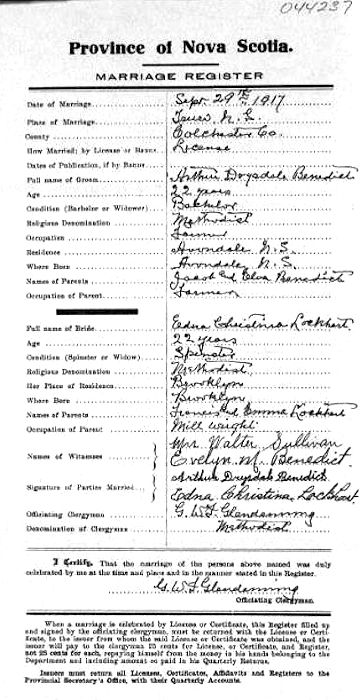 044237
Province of Nova Scotia.
MARRIAGE REGISTER
Date of Marriage Sept 29th 1917
Place of Marriage Truro N.S.
County Colchester Co.
How Married; by License or Banns License
Dates of Publication, if by Banns
Full name of Groom Arthur Drysdale Benedict
Age 22 years
Condition (Bachelor or Widower) Bachelor
Religious Denomination Methodist
Occupation Farmer
Residence Avondale N.S.
Where Born Avondale N.S.
Names of Parents Jacob and Elva Benedict
Occupation of Parent Farmer
Full name of Bride Edna Christina Lockhart
Age 22 years
Condition (Spinster or Widow) Spinster
Religious Denomination Methodist
Her Place of Residence Brooklyn
Where Born Brooklyn
Names of Parents Francis and Emma Lockhart
Occupation of Parent Mill wright
Names of Witnesses Mrs. Walter Sullivan
Evelyn M. Benedict
Signature of Parties Married Arthur Drysdale Benedict
Edna Christina Lockhart
Officiating Clergyman G. W. F. Glendenning
Denomination of Clergyman Methodist
I Certify, That the marriage of the persons above named was duly
celebrated by me at the time and place and in the manner stated in this Register.
G. W. F. Glendenning
Officiating Clergyman.
When a marriage is celebrated by License or Certificate, this Register filled up
and signed by the officiating clergyman, must be returned with the License or Certi-
ficate, to the issuer from whom the said License or Certificate was obtained, and the
issuer will pay to the clergyman 25 cents for License, or Certificate, and Register,
not 25 cents for each, repaying himself from the money in his hands belonging to the
Department and including amount so paid in his Quarterly Returns.
Issuers must return all Licenses, Certificates, Affidavits and Registers to the
Provincial Secretary's Office, with their Quarterly Accounts.